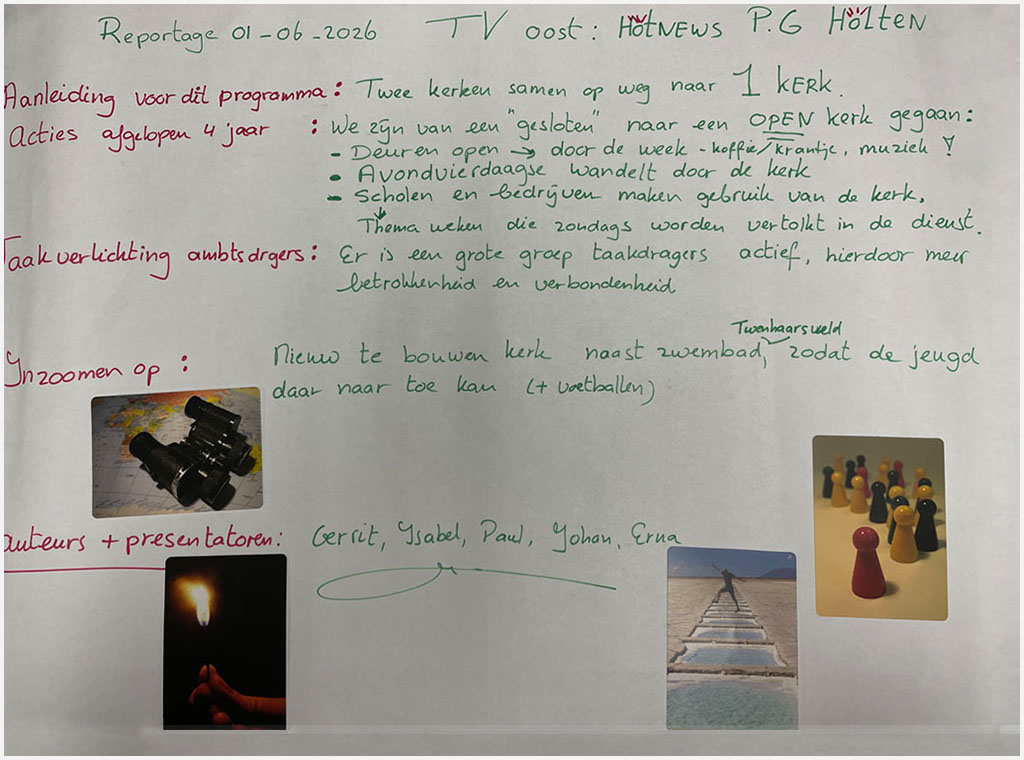 Reportage 01-06-2026 TV oost: HOTNEWS P.G HOLTEN
Aanleiding voor dit programma: Twee kerken samen op weg naar 1 KERK.
Acties afgelopen 4 jaar : We zijn van een "gesloten" naar een OPEN kerk gegaan:
- Deuren open → door de week - koffie/krantje, muziek!
- Avondvierdaagse wandelt door de kerk
- Scholen en bedrijven maken gebruik van de kerk.
Thema weken die zondags worden vertolkt in de dienst.
Taakverlichting ambtsdrgers: Er is een grote groep taakdragers actief, hierdoor meer
betrokkenheid en verbondenheid
Twenhaarsveld
Ynzoomen op : Nieuw te bouwen kerk naast zwembad, zodat de jeugd
daar naar toe kan (+ voetballen)
auteurs + presentatoren: Gerrit, Ysabel, Paul, Johan, Erna